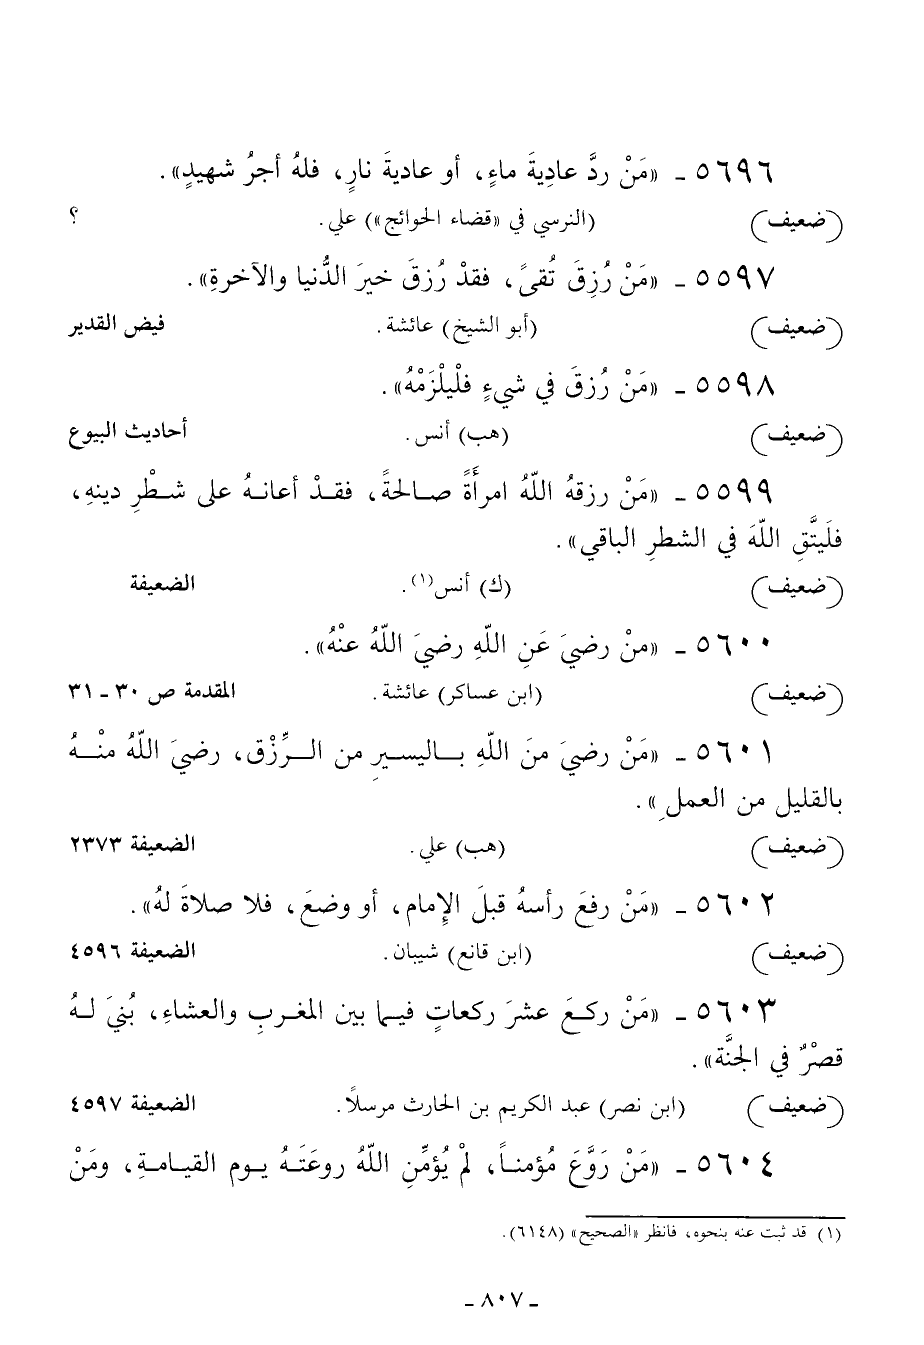 ٥٦٩٦ ـ «مَنْ ردَّ عادِيةَ ماءٍ، أو عاديةَ نارٍ، فلهُ أجرُ شهيدٍ».
(ضعيف) (النرسي في «قضاء الحوائج») علي. ؟
٥٥٩٧ ـ «مَنْ رُزِقَ تُقىً، فقدْ رُزقَ خيرَ الدُّنيا والآخرةِ».
(ضعيف) (أبو الشيخ) عائشة. فيض القدير
٥٥٩٨ ـ «مَنْ رُزقَ في شيءٍ فلْيلْزَمْهُ».
(ضعيف) (هب) أنس. أحاديث البيوع
٥٥٩٩ ـ «مَنْ رزقهُ اللّهُ امرأَةً صالحةً، فقدْ أعانهُ على شطْرِ دينهِ،
فلَيتَّقِ اللّهَ في الشطرِ الباقي».
(ضعيف) (ك) أنس(١). الضعيفة
٥٦٠٠ ـ «منْ رضيَ عَنِ اللّهِ رضيَ اللّهُ عنْهُ».
(ضعيف) (ابن عساكر) عائشة. المقدمة ص ٣٠ ـ ٣١
٥٦٠١ ـ «مَنْ رضيَ منَ اللّهِ باليسيرِ من الرِّزْق، رضيَ اللّهُ منْهُ
بالقليل من العملِ».
(ضعيف) (هب) علي. الضعيفة ٢٣٧٣
٥٦٠٢ ـ «مَنْ رفعَ رأسهُ قبلَ الإِمام، أو وضعَ، فلا صلاةَ لهُ».
(ضعيف) (ابن قانع) شيبان. الضعيفة ٤٥٩٦
٥٦٠٣ ـ «مَنْ ركعَ عشرَ ركعاتٍ فيما بين المغربِ والعشاءِ، بُنيَ لهُ
قصْرٌ في الجنَّة».
(ضعيف) (ابن نصر) عبد الكريم بن الحارث مرسلاً. الضعيفة ٤٥٩٧
٥٦٠٤ ـ «مَنْ رَوَّعَ مُؤمناً، لمْ يُؤمِّنِ اللّهُ روعتَهُ يوم القيامةِ، ومَنْ
(١) قد ثبت عنه بنحوه، فانظر «الصحيح» (٦١٤٨).
ـ ٨٠٧ ـ